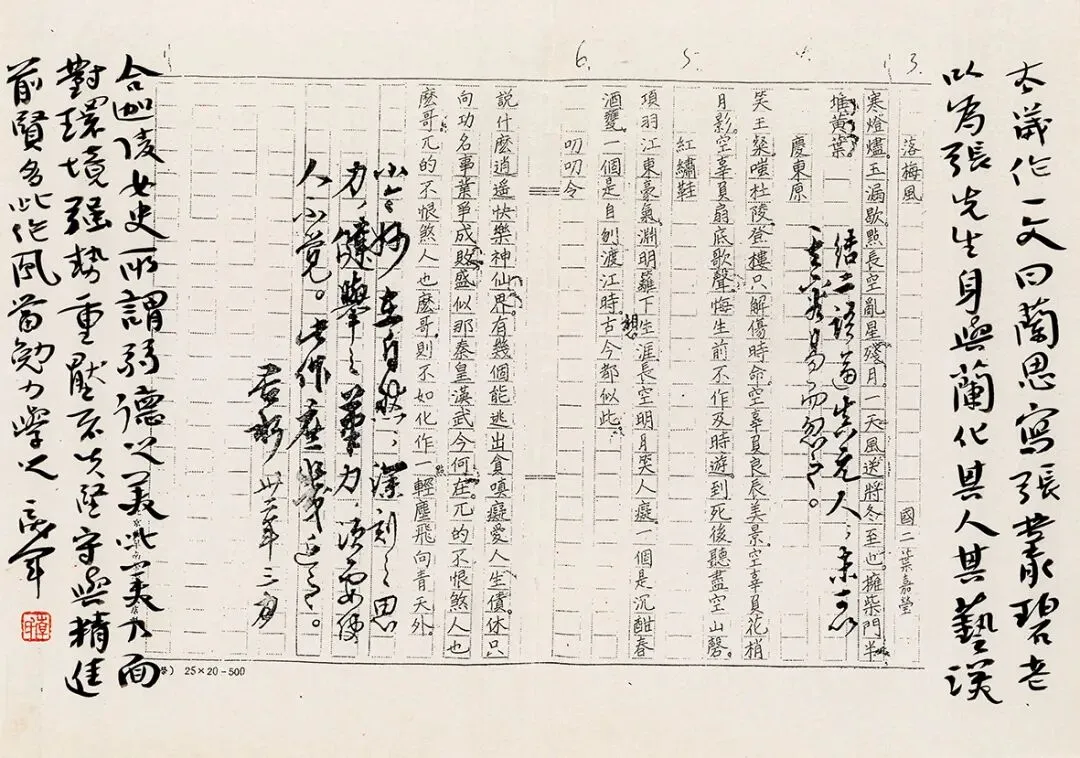 3.
4.
5.
6.
去歲作一文曰蘭思寫張叢碧老
以為張先生身與蘭化其人其藝璞
落梅風 國二葉嘉瑩
寒燈燼。玉漏歇。點長空亂星殘月。一天風送將冬至也。擁柴門半
堆黃葉。
結二語逼真元人；未可以
其容易而忽之。
慶東原
笑王粲。嗤杜陵。登樓只解傷時命。空辜負良辰美景。空辜負花梢
月影。空辜負扇底歌聲。悔生前不作及時遊。到死後聽盡空山磬。
紅繡鞋
項羽江東豪氣。淵明籬下生涯。長空明月笑人癡。一個是沉酣春
酒甕。一個是自刎渡江時。想古今都似此。
叨叨令
說什麼逍遥快樂神仙界。有幾個能逃出貪嗔癡愛人生債。休只
向功名事業爭成敗。盛似那秦皇漢武今何在。兀的不恨煞人也
麼哥。兀的不恨煞人也麼哥。則不如化作一點輕塵飛向青天外。
小令妙在自然，深刻之思
力，健舉之筆力，須要使
人不覺。此作庶幾近之。
三月
25×20-500
合迦陵女史所謂弱德之美此美乃面
對環境強勢重壓不失堅守與精進
前賢多此作風當勉力學之